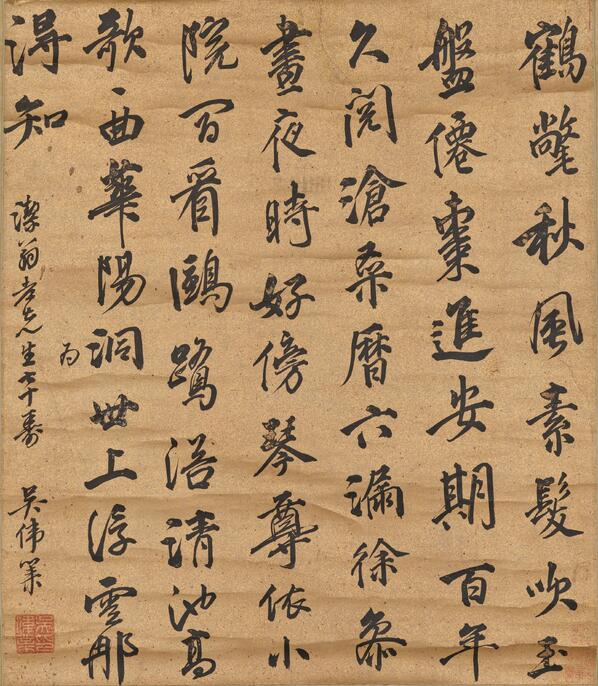 鶴氅秋風素髮吹玉
盤僊棗進安期百年
久閱滄桑曆六漏徐叅
晝夜時好傍琴尊依小
院閒看鷗鷺浴清池高
歌一曲華陽洞世上浮雲那
得知
潔翁老先生七十壽
为
吳偉業